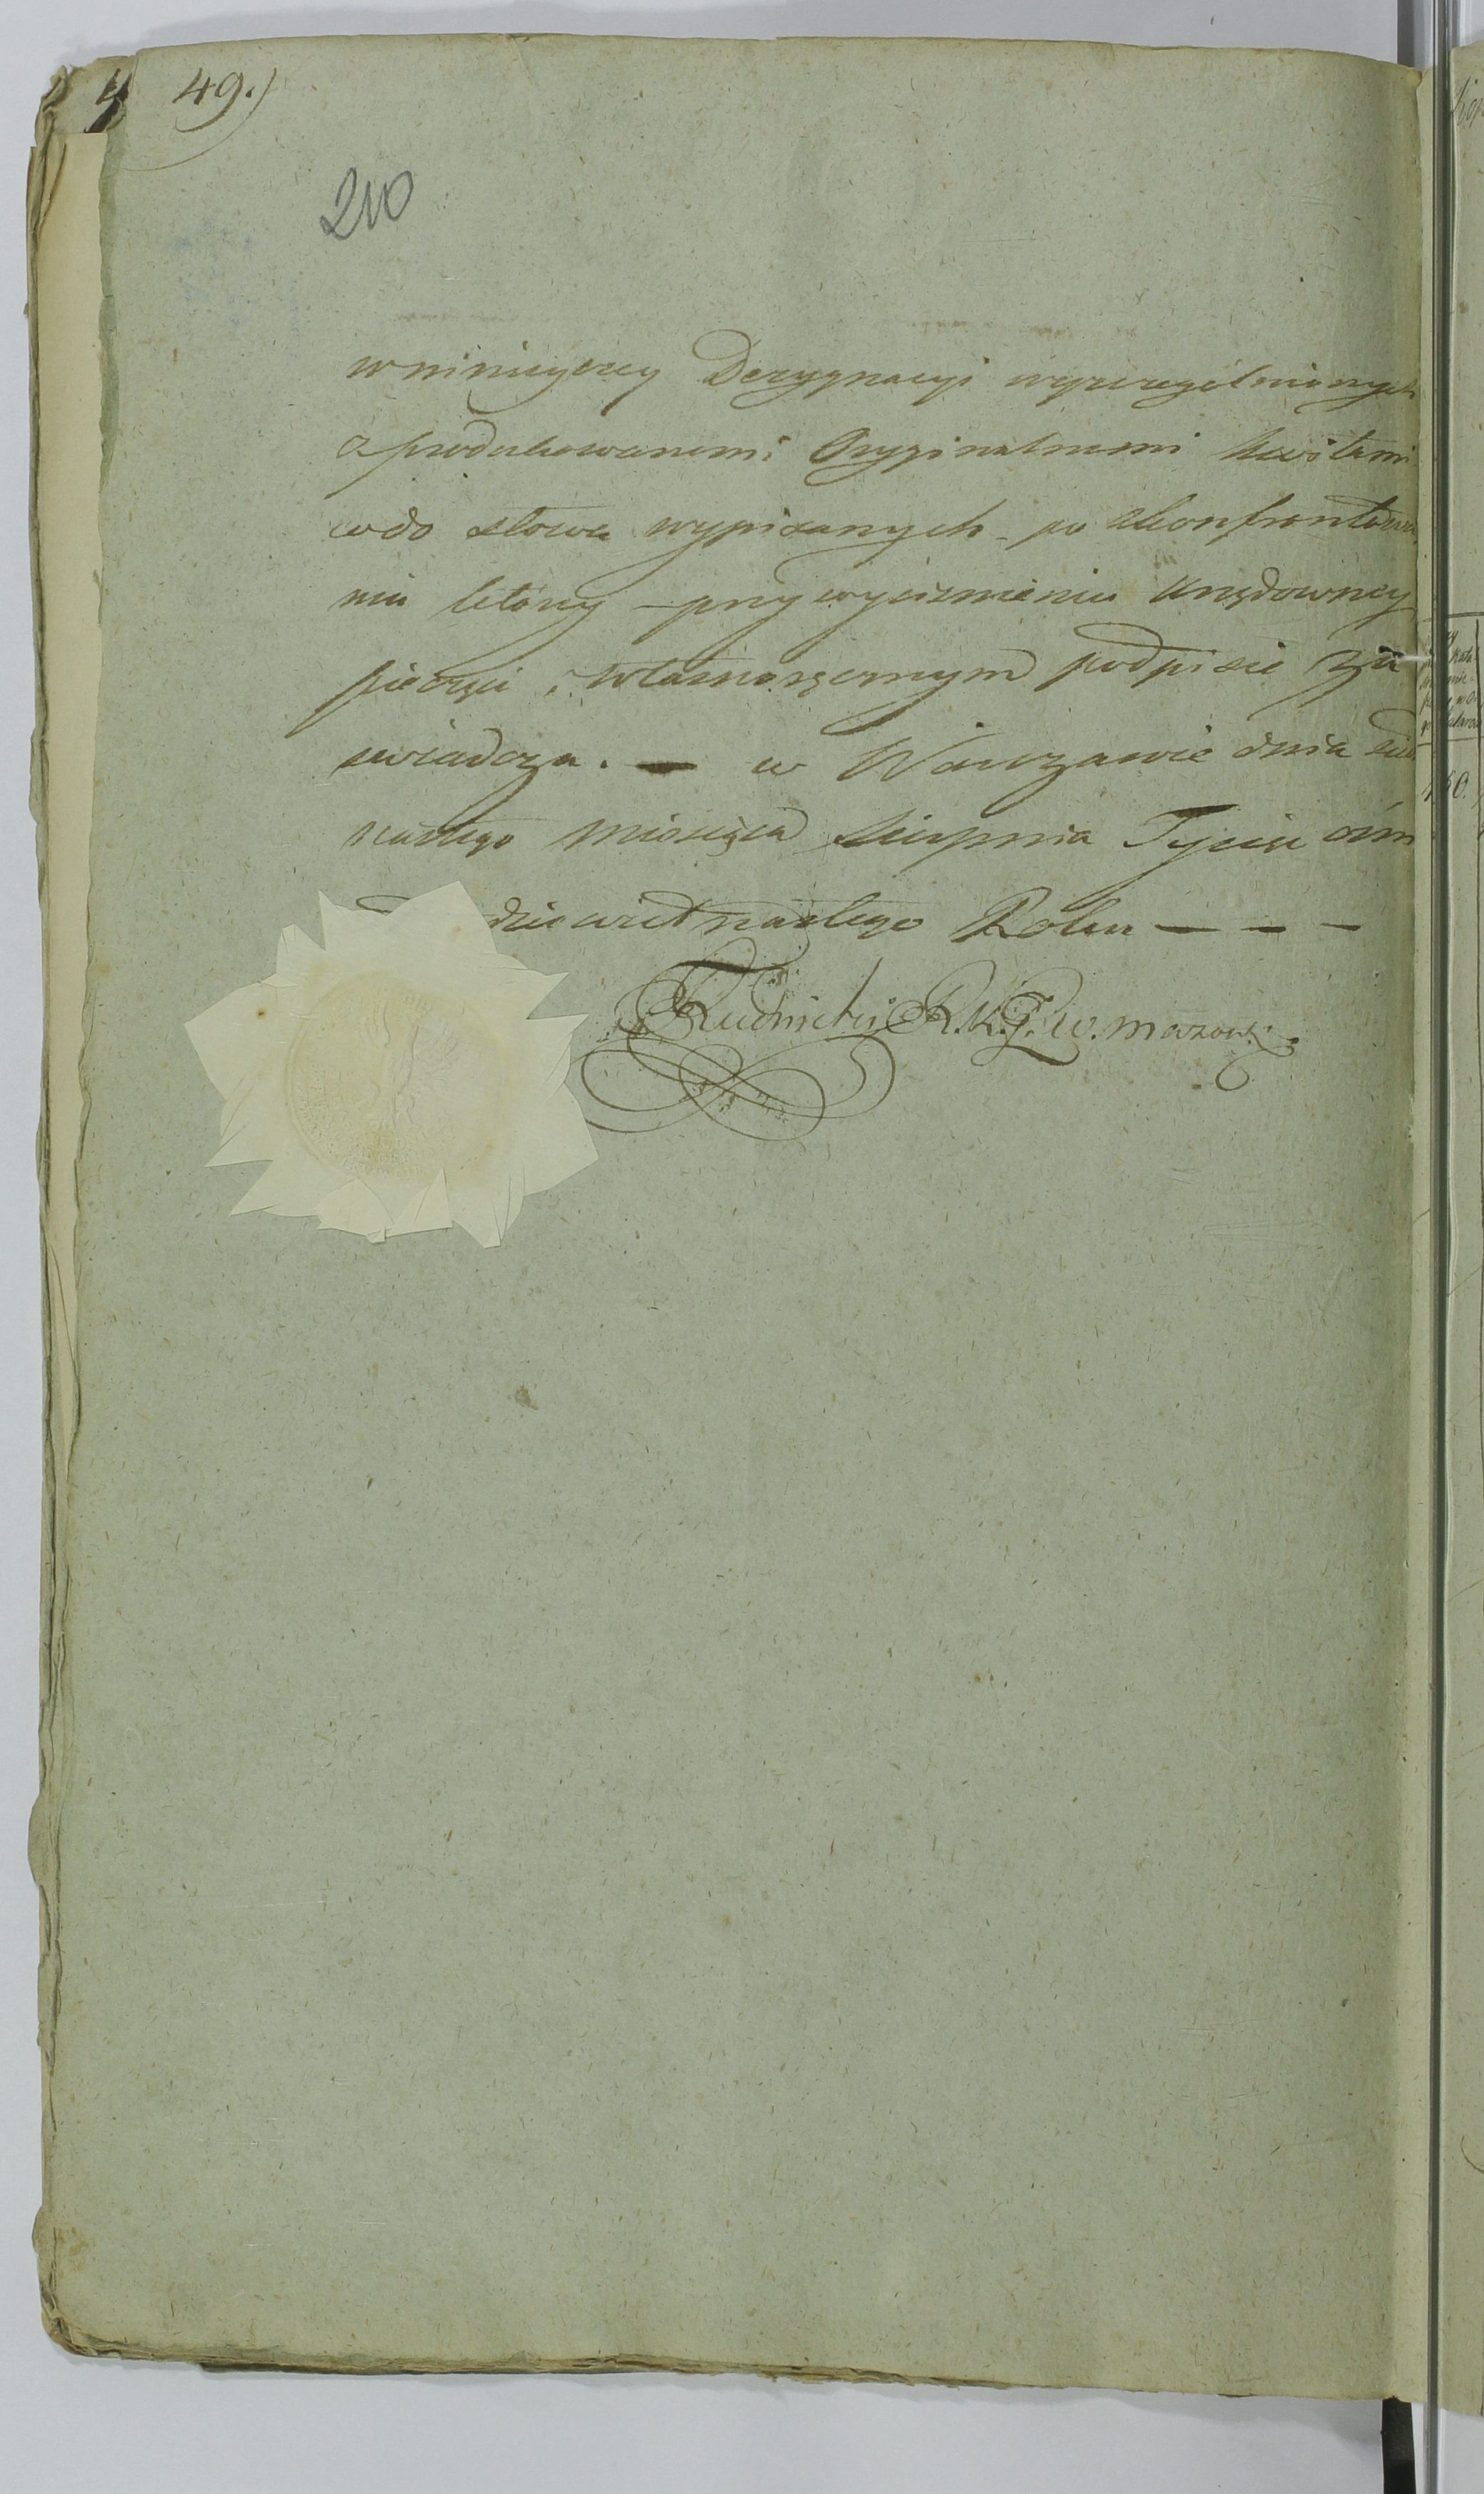 49.)
210
w ninieyszey Dezygnacyi wyszczegulnionych
z produkowanemi Oryginalnemi kwitami
co do słowa wypisanych po skonfrontowa
niu który przy wyciśnieniu Urzędowney
pieczęci i własnoręcznym podpisie Za
swiadcza. — w Warszawie dnia
nastego Miesiąca Sierpnia Tysiąc ośm
dziewiętnastego Roku — — —
Rudnicki R.K.P.W. Mazow: